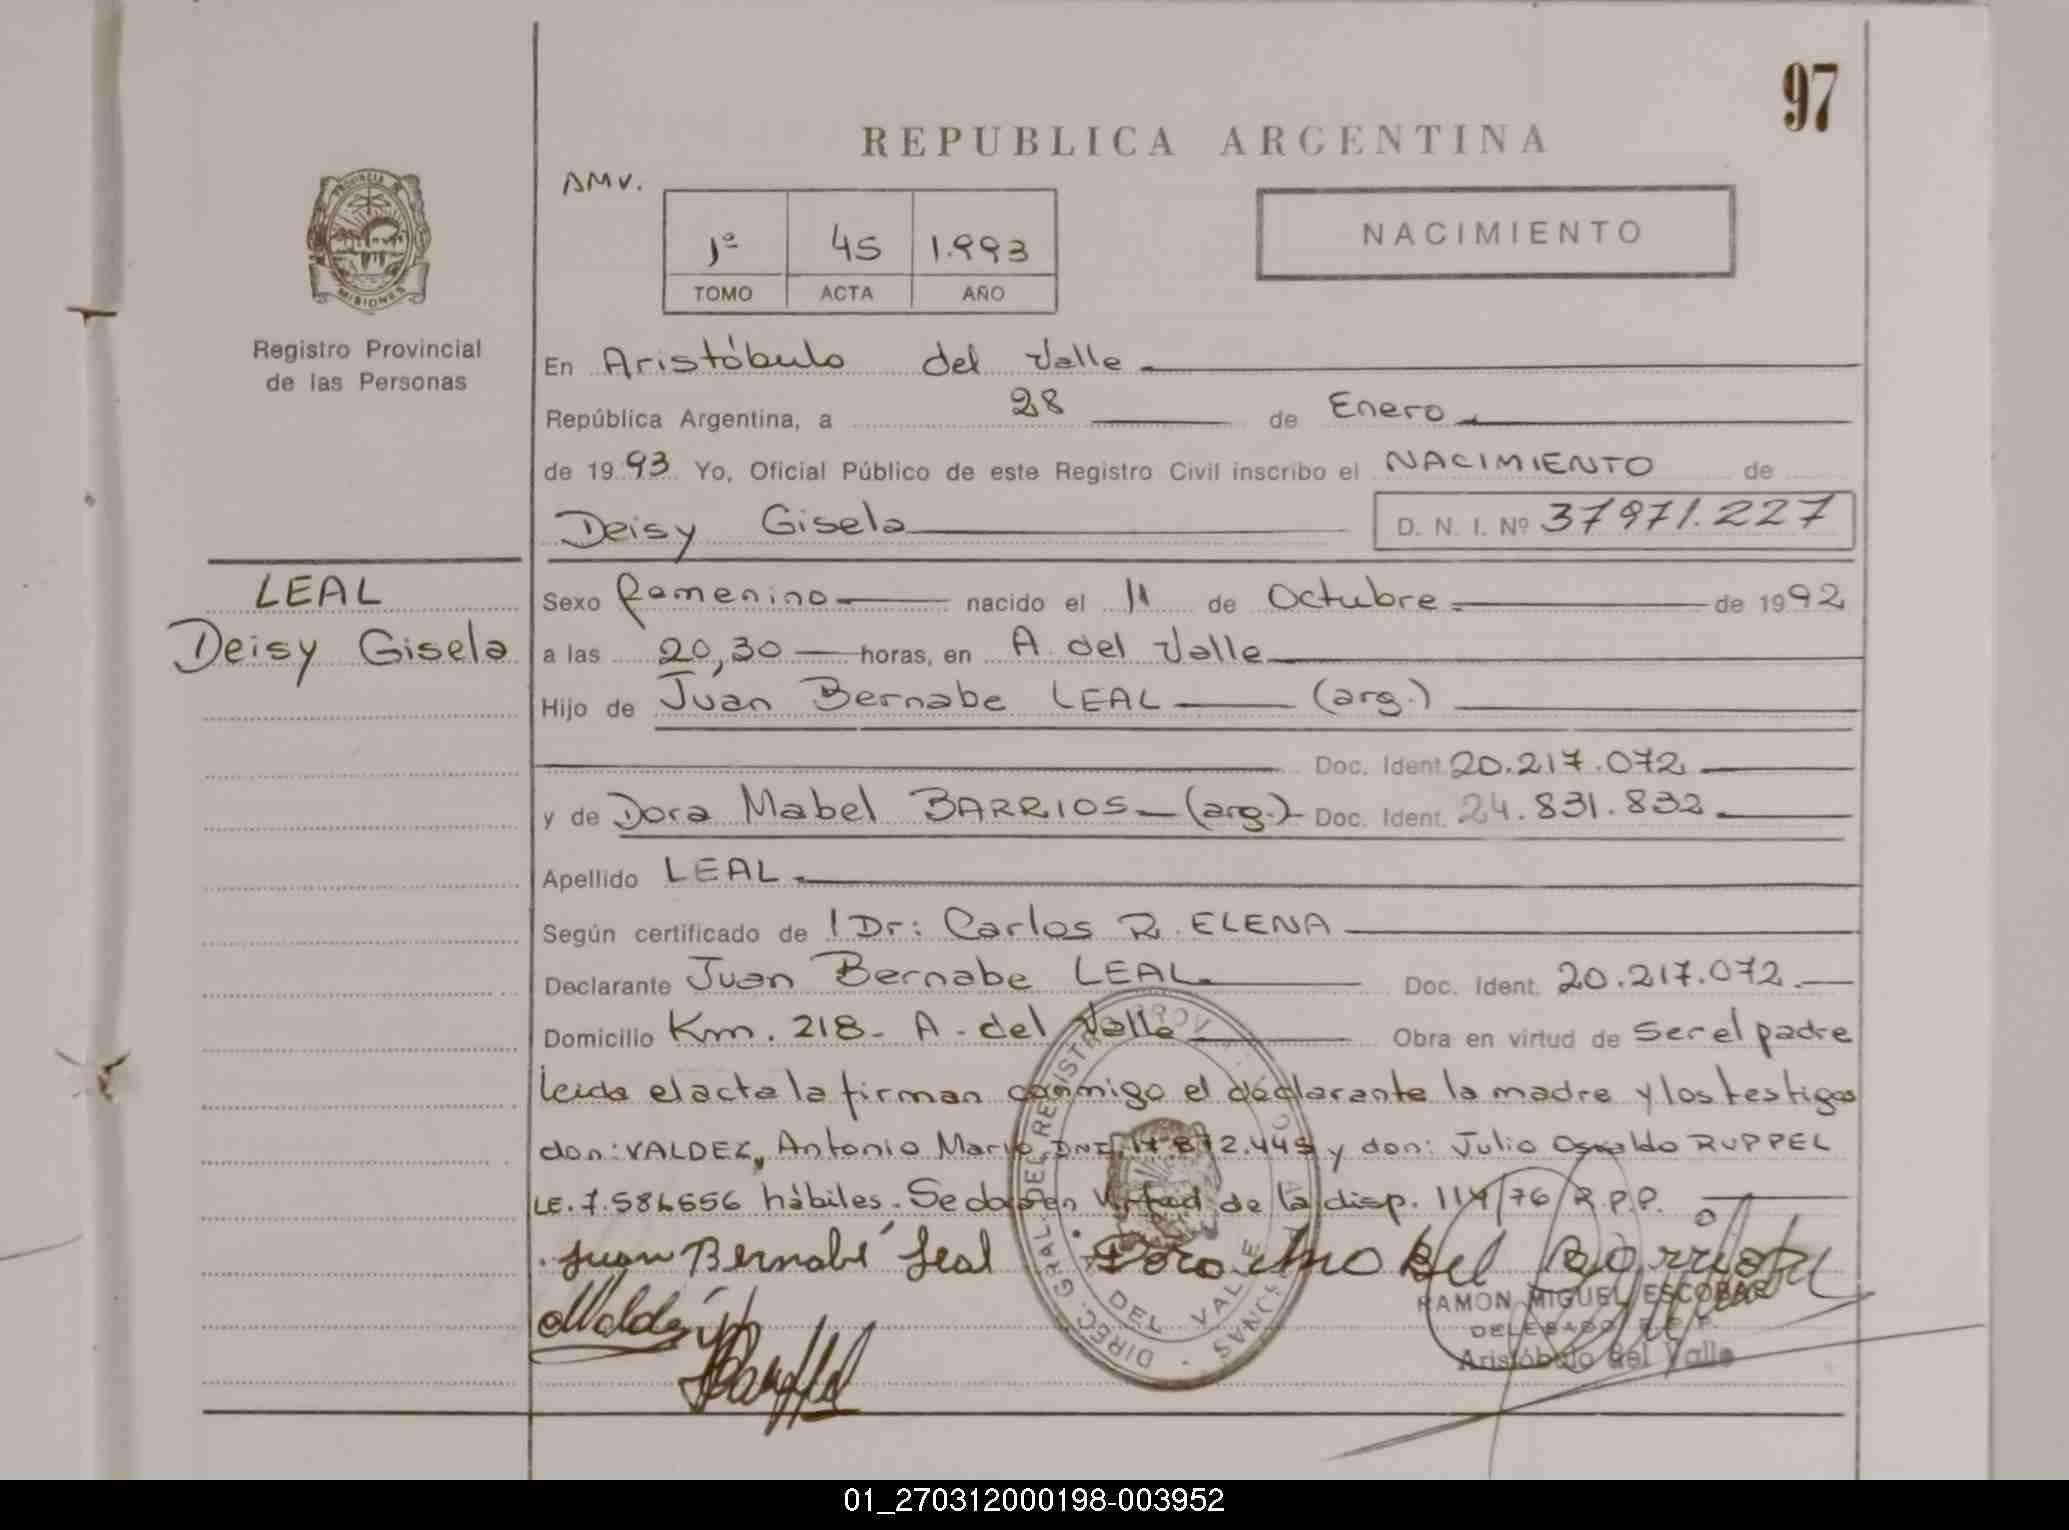 97
REPUBLICA ARGENTINA
AMV.
1º 45 1.993
TOMO ACTA AÑO
NACIMIENTO
PROVINCIA DE
MISIONES
Registro Provincial
de las Personas
En Aristóbulo del Valle
República Argentina, a 28 de Enero
de 1993 Yo, Oficial Público de este Registro Civil inscribo el NACIMIENTO de
Deisy Gisela D. N. I. Nº 37971.227
LEAL
Deisy Gisela
Sexo femenino nacido el 11 de Octubre de 1992
a las 20,30 horas, en A. del Valle
Hijo de Juan Bernabe LEAL (arg.)
Doc. Ident. 20.217.072
y de Dora Mabel BARRIOS (arg.) Doc. Ident. 24.831.832
Apellido LEAL
Según certificado de l Dr: Carlos R. ELENA
Declarante Juan Bernabe LEAL Doc. Ident. 20.217.072
Domicilio Km. 218- A. del Valle Obra en virtud de ser el padre
leida el acta la firman conmigo el declarante la madre y los testigos
don: VALDEZ, Antonio Mario DNI. y don: Julio Osvaldo RUPPEL
LE. hábiles. Se en virtud de la disp. 114/76 R.P.P.
Juan Bernabé Leal Dora Mabel Barrios
RAMON MIGUEL ESCOBAR
DELEGADO R.P.P.
Aristóbulo del Valle
DIREC. GRAL. DEL REGISTRO
DEL VALLE
01_270312000198-003952